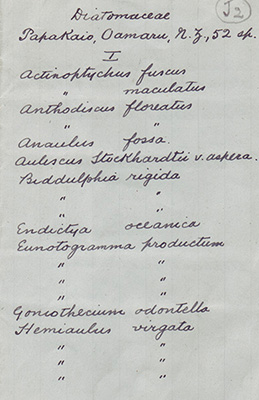 J2
Diatomaceae
Papakaio, Oamaru, N.Z., 52 sp.
I
Actinoptychus fuscus
" maculatus
Anthodiscus floreatus
" "
Anaulus fossa.
Auliscus Stöckhardtii v. aspera.
Biddulphia rigida
" "
" "
Endictya oceanica
Eunotogramma productum
" "
" "
" "
Goniothecium odontella
Hemiaulus virgata
" "
" "
" "